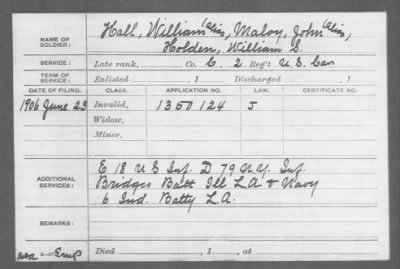 NAME OF SOLDIER: Hall, William (alias, Maloy, John alias,
Holden, William S.
SERVICE: Late rank, Co. C. 2 Reg't U.S. Cav
TERM OF SERVICE: Enlisted , 1 Discharged , 1
DATE OF FILING. CLASS. APPLICATION NO. LAW. CERTIFICATE NO.
1906 June 23 Invalid, 1350124 J
Widow,
Minor,
E 18 U S Inf. D 79 N.Y. Inf.
ADDITIONAL SERVICES: Bridges Batt Ill L.A. & Navy
6 Ind. Batty L.A.
REMARKS:
Died , 1 , at